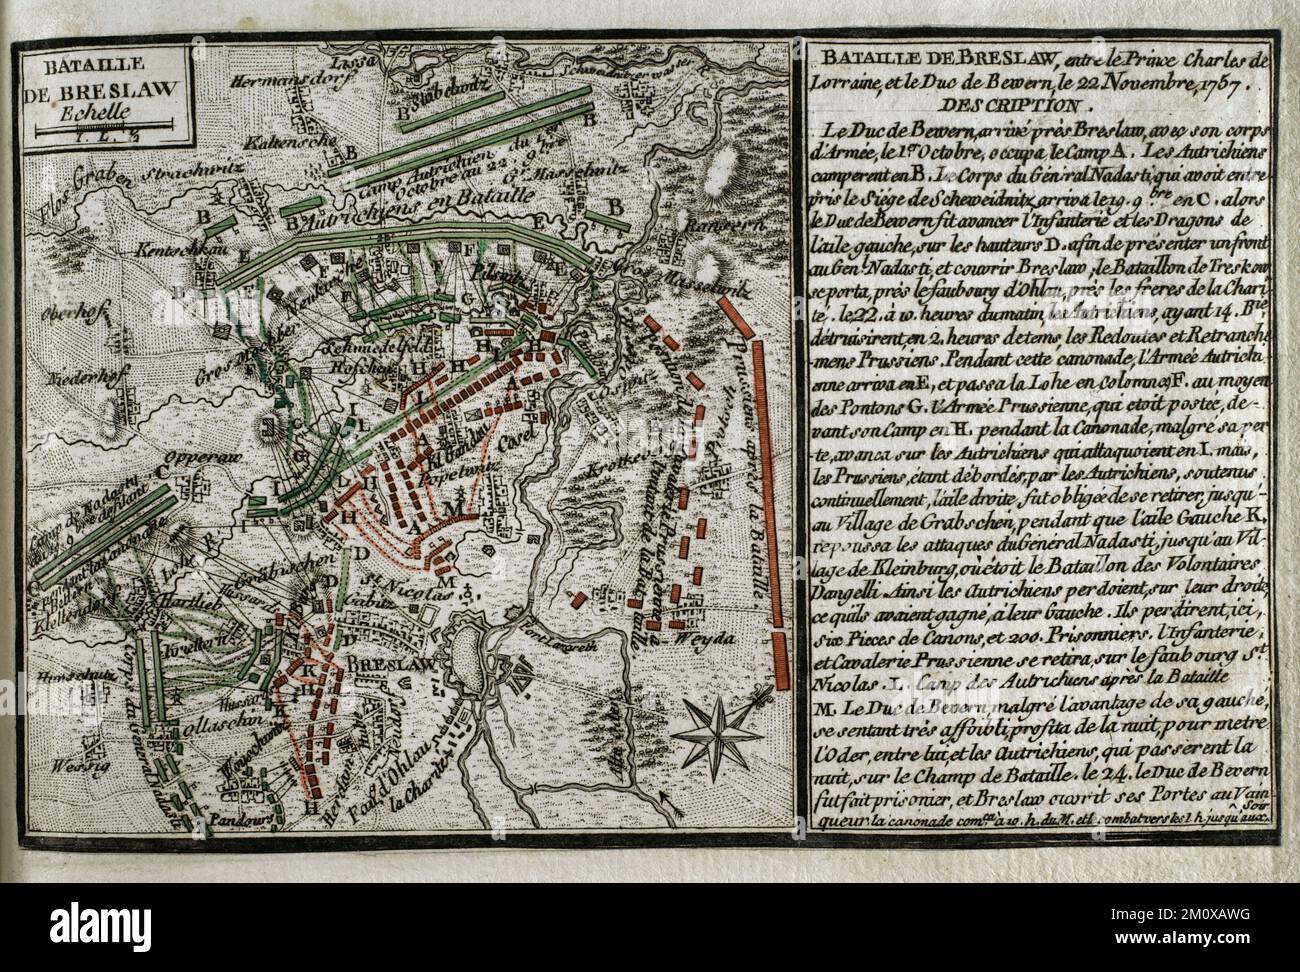 BATAILLE
DE BRESLAW
Echelle
Lissa
Hermansdorf
Stabelwitz
Schweidnitzer waster
Kaltensche
Camp Autrichien du
Octobre au 22 9bre
Gr. Masselwitz
Flos Graben
Strachwitz
Autrichiens en Bataille
Kentschkau
Ransern
Gros Masselwitz
Pilsnitz
Neukirche
Oberhof
Gros Mochber
Schmiedefeld
Hofchen
Niederhof
Oswitz
Protsch
Prussiens après la Bataille
Kl Gandau
Cosel
Popelwitz
Krotke
Opperaw
Camp de Nadasty
Lohe R
Gräbischen
St Nicolas
Gabitz
Hartlieb
Kletendorf
BRESLAW
Weyda
Hunschutz
Corps du General Nadasti
Woischwitz
Wessig
Pandours
Faud d'Ohlau
la Charité
Alte Oder
BATAILLE DE BRESLAW, entre le Prince Charles de
Lorraine, et le Duc de Bewern, le 22 Novembre, 1757.
DESCRIPTION.
Le Duc de Bewern, arrivé près Breslaw, avec son corps
d'Armée, le 1er Octobre, occupa, le Camp A. Les Autrichiens
camperent en B. Le Corps du Géniral Nadasti, qui avoit entre
pris le Siège de Scheweidnitz, arriva le 19. 9bre en C. alors
le Duc de Bewern fit avancer l'Infanterie et les Dragons de
l'aile gauche, sur les hauteurs D. afin de présenter un front
au Genl Nadasti, et couvrir Breslaw, le Bataillon de Treskow
se porta, près le faubourg d'Ohlau, près les freres de la Chari
té. le 22. à 10. heures du matin, les Autrichiens, ayant 14. Brie
détruisirent, en 2. heures de tems, les Redoutes et Retranche
mens Prussiens. Pendant cette canonade, l'Armée Autrichi
enne arriva en E, et passa la Lohe en colomnes F. au moyen
des Pontons G. l'Armée Prussienne, qui etoit postée, de-
vant son Camp en H. pendant la Canonade, malgré sa per
te, avança sur les Autrichiens qui attaquoient en I. mais,
les Prussiens, étant débordés, par les Autrichiens, soutenus
continuellement, l'aile droite, fut obligée de se retirer, jusqu'-
au Village de Grabschen, pendant que l'aile Gauche K.
repoussa les attaques du Général Nadasti, jusqu'au Vil
lage de Kleinburg, où étoit le Bataillon des Volontaires
Dangelli. Ainsi les Autrichiens perdoient, sur leur droite,
ce qu'ils avaient gagné, à leur Gauche. Ils perdirent, ici,
six Pieces de Canons, et 200. Prisonniers. l'Infanterie,
et Cavalerie Prussienne se retira, sur le faubourg St
Nicolas. L. Camp des Autrichiens après la Bataille
M. Le Duc de Bevern, malgré l'avantage de sa gauche,
se sentant très affoibli, profita de la nuit, pour metre
l'Oder, entre lui, et les Autrichiens, qui passèrent la
nuit, sur le Champ de Bataille. le 24. le Duc de Bevern
fut fait prisonier, et Breslaw ouvrit ses Portes au Vain
queur. la canonade comça à 10. h. du M. et le combat vers les 1 h. jusqu'aux. Soir
alamy
Image ID: 2M0XAWG
www.alamy.com